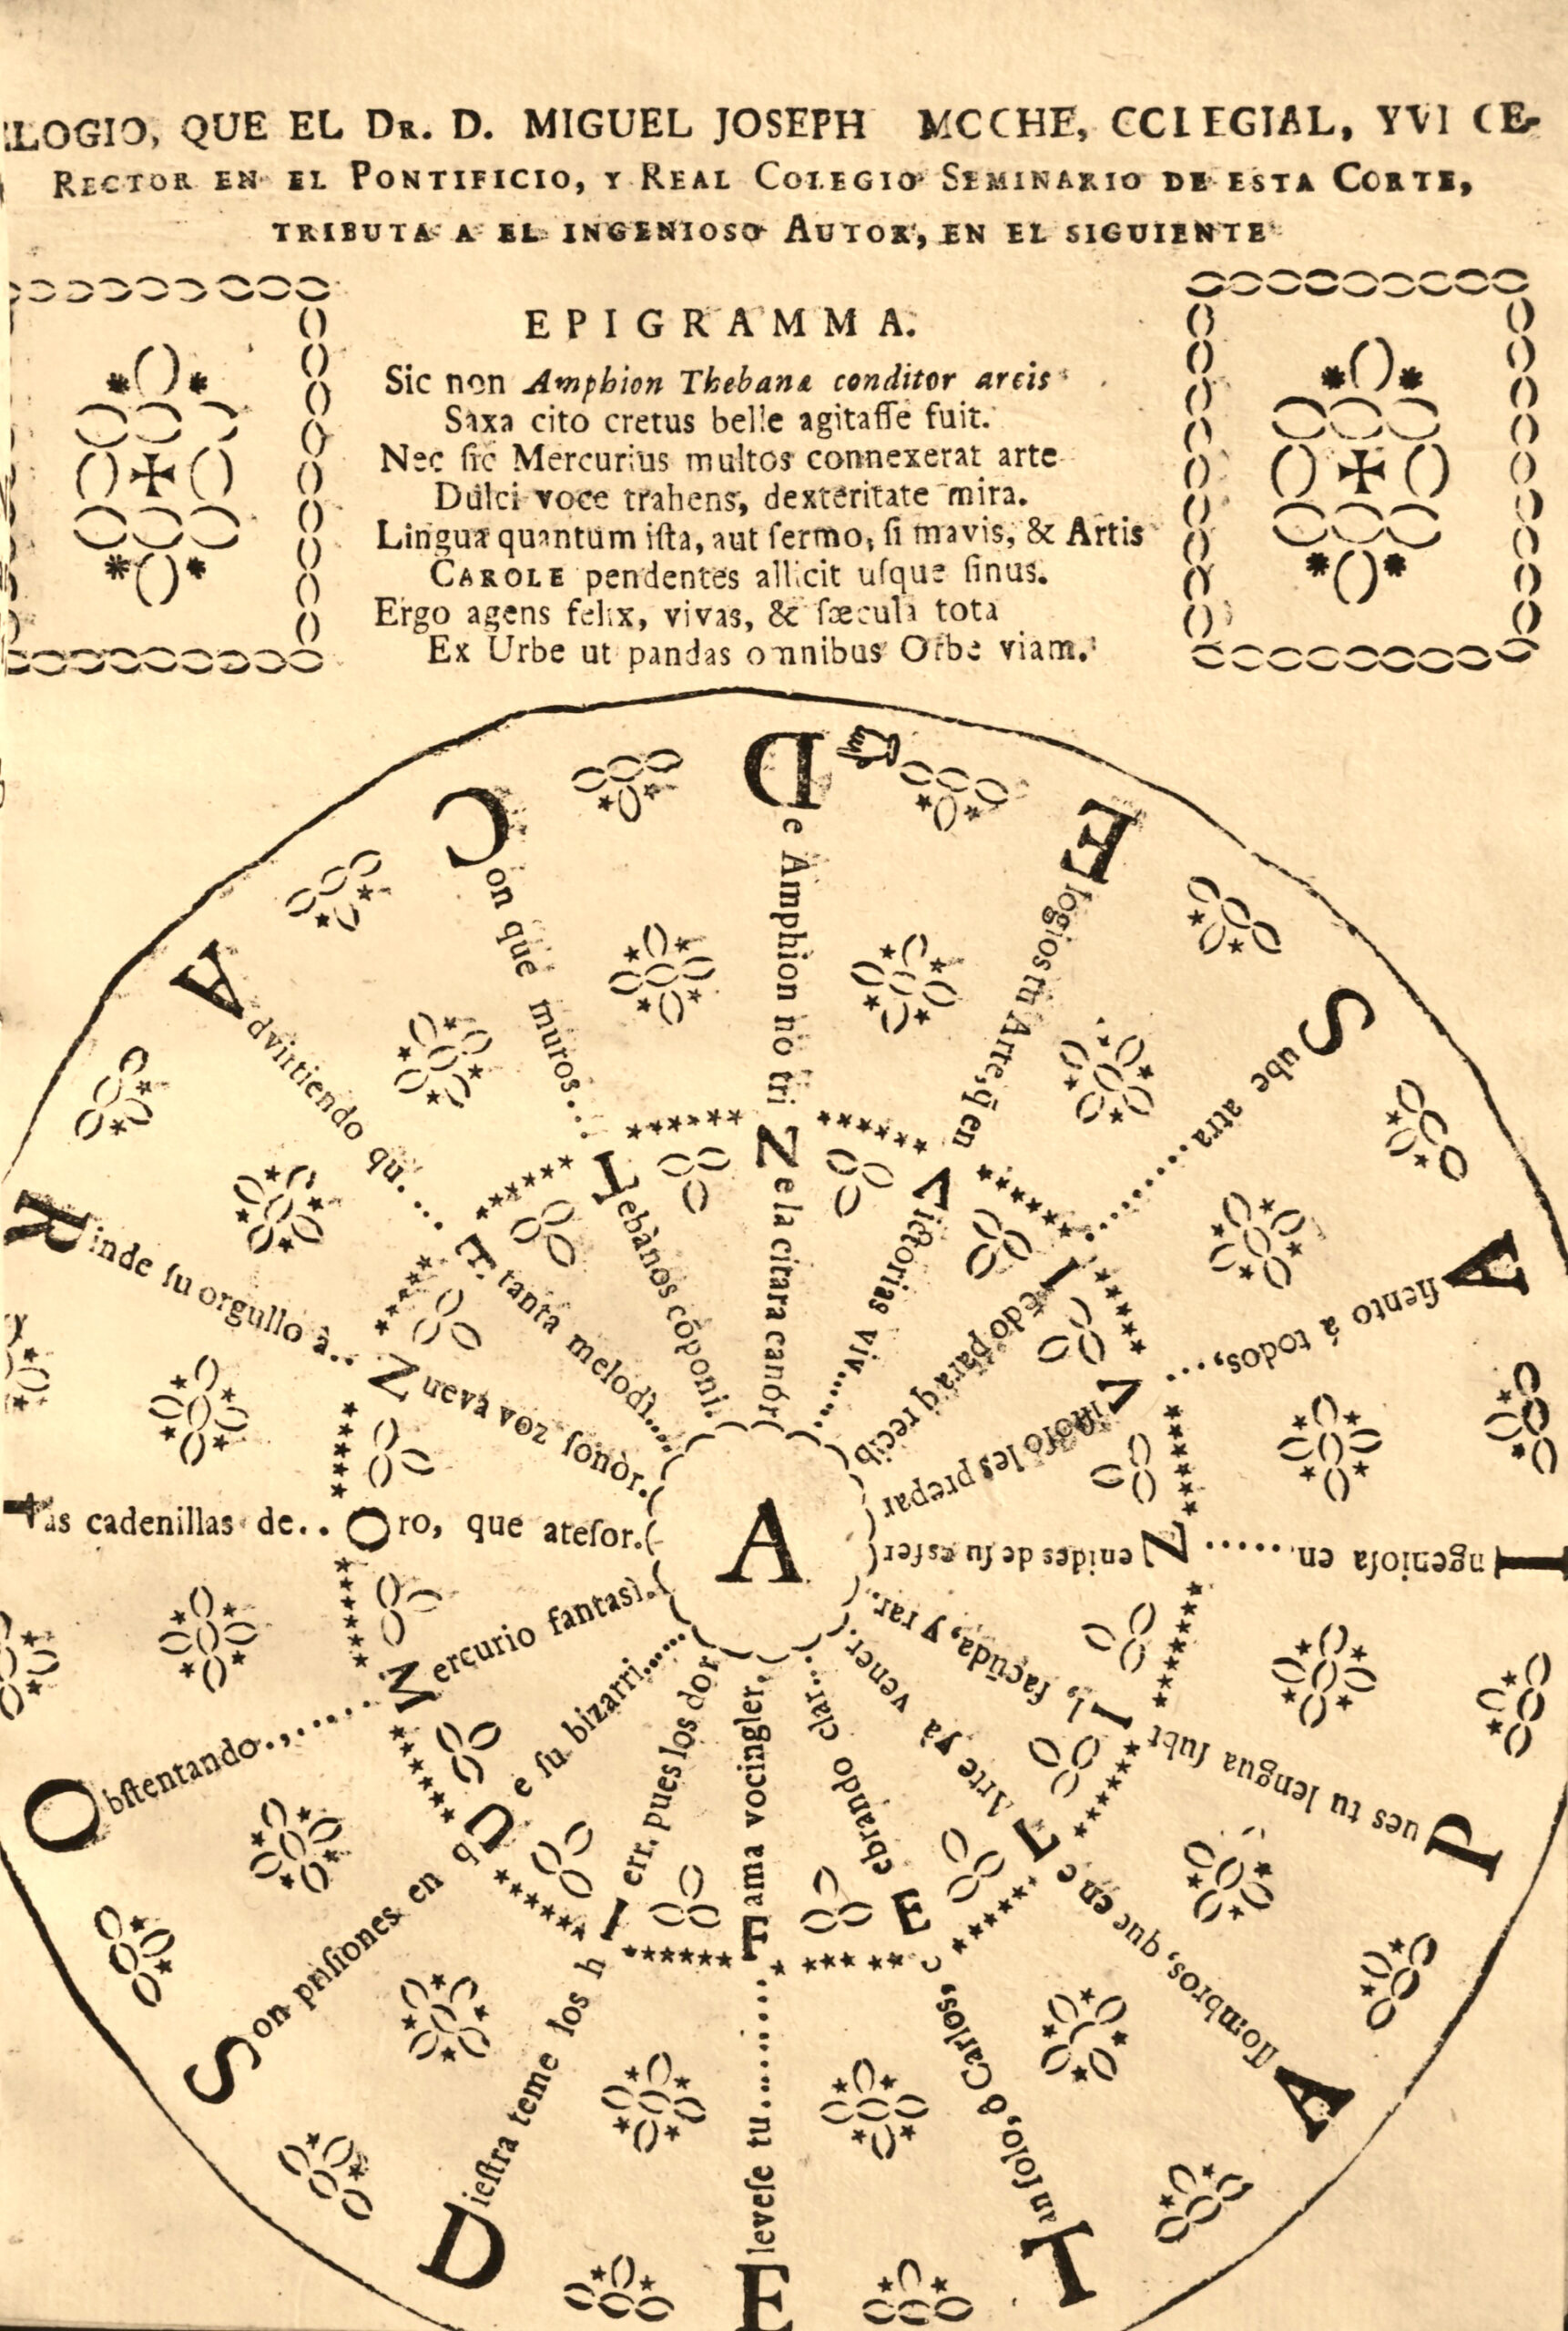 ELOGIO, QUE EL DR. D. MIGUEL JOSEPH MCCHE, CCLEGIAL, YVI CE-
RECTOR EN EL PONTIFICIO, Y REAL COLEGIO SEMINARIO DE ESTA CORTE,
TRIBUTA A EL INGENIOSO AUTOR, EN EL SIGUIENTE
EPIGRAMMA.
Sic non Amphion Thebanæ conditor arcis
Saxa cito cretus belle agitaſſe fuit.
Nec ſic Mercurius multos connexerat arte
Dulci voce trahens, dexteritate mira.
Linguæ quantum iſta, aut ſermo, ſi mavis, & Artis
CAROLE pendentes allicit uſque ſinus.
Ergo agens felix, vivas, & ſæcula tota
Ex Urbe ut pandas omnibus Orbe viam.
De Amphion no tri Ne la citara canór
Con que muros... Tebànos cōponi.
Advirtiendo qu.... T. tanta melodì....
Rinde ſu orgullo à.. Nueva voz ſonòr.
Las cadenillas de.. Oro, que ateſor.
Obſtentando.,...... Mercurio fantasì.
Son priſiones en qUe ſu bizarri.....
Dieſtra teme los hIerr. pues los dor
Eleveſe tu........ Fama vocingler,
Tan ſolo, ò Carlos, cElebrando clar..
Aſſombros, que en eL Arte yà vener.
Pues tu lengua ſubtIl, facūda, y rar.
Ingenioſa en...... Nenides de ſu esfer
Aſiento à todos,... Viſtoſo les prepar
Sube atra........... Iedo para q̄ recib
Elogios tu Arte, q̄ en Victorias viv.....
A